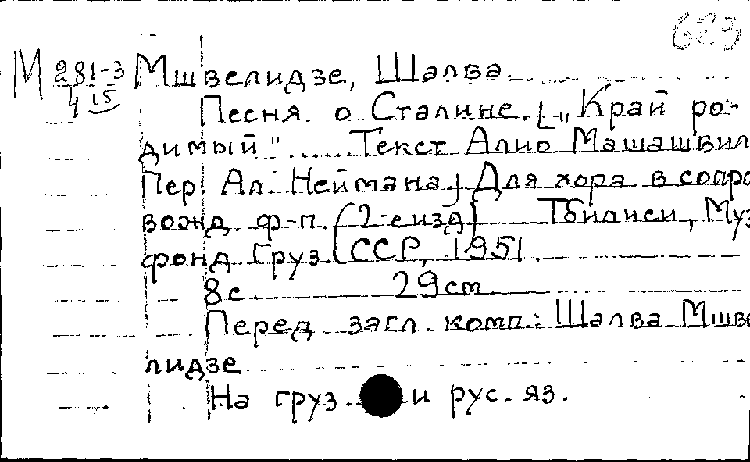 623
М 281-3 Мшвелидзе, Шалва
4 15 Песня о Сталине. [„Край ро-
димый" ..... Текст Алио Машашвил
Пер. Ал. Неймана.] Для хора в сопро
вожд. ф-п. (2-е изд) Тбилиси, Муз
фонд Груз ССР, 1951.
8 с 29 ст.
Перед загл. комп.: Шалва Мшве
лидзе
На груз. и рус. яз.